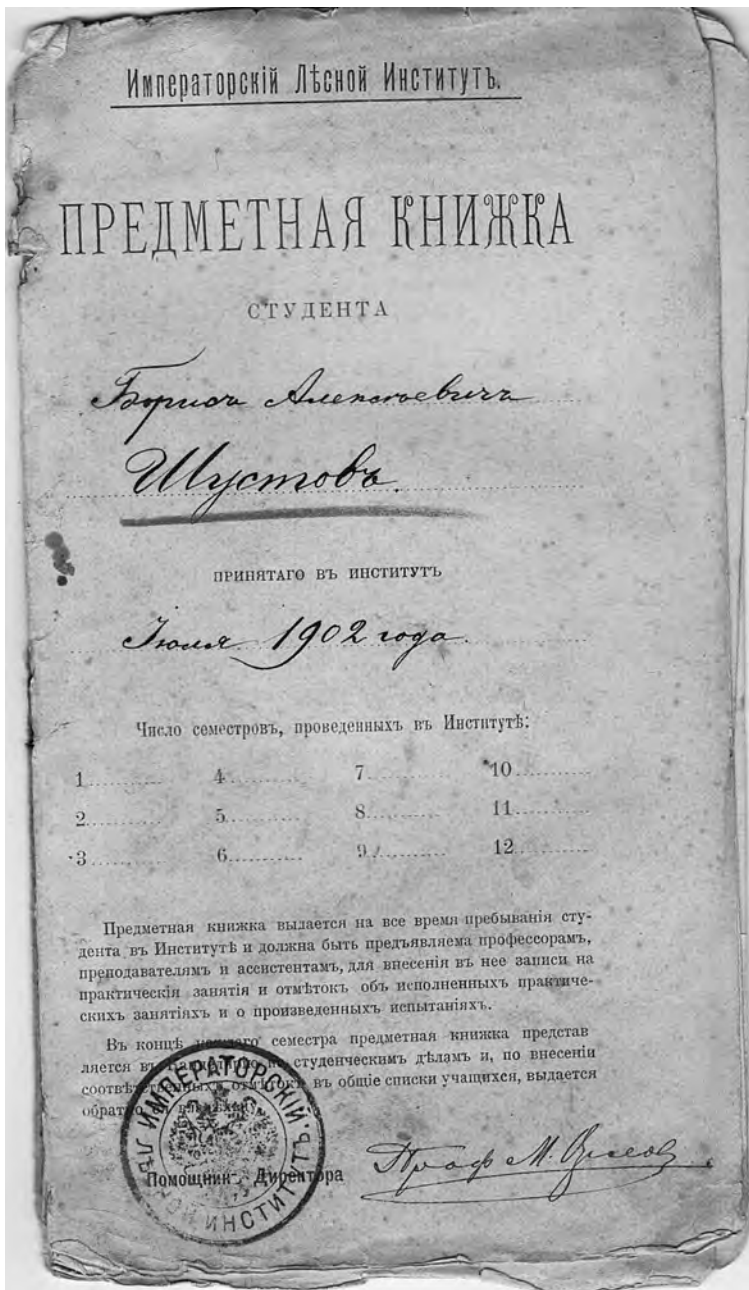 Императорскій Лѣсной Институтъ.
ПРЕДМЕТНАЯ КНИЖКА
СТУДЕНТА
Бориса Алексѣевича
Шустовъ.
ПРИНЯТАГО ВЪ ИНСТИТУТЪ
Іюля 1902 года.
Число семестровъ, проведенныхъ въ Институтѣ:
1 4 7 10
2 5 8 11
3 6 9 12
Предметная книжка вылается на все время пребыванія сту-
дента въ Институтѣ и должна быть предъявляема профессорамъ,
преподавателямъ и ассистентамъ, для внесенія въ нее записи на
практическія занятія и отмѣтокъ объ исполненныхъ практиче-
скихъ занятіяхъ и о произведенныхъ испытаніяхъ.
Въ концѣ каждаго семестра предметная книжка представ
ляется въ Канцелярію по студенческимъ дѣламъ и, по внесеніи
соотвѣтственныхъ отмѣтокъ въ общіе списки учащихся, выдается
обратно
Помощникъ Директора Проф М.
ИМПЕРАТОРСКІЙ ЛѢСНОЙ ИНСТИТУТЪ